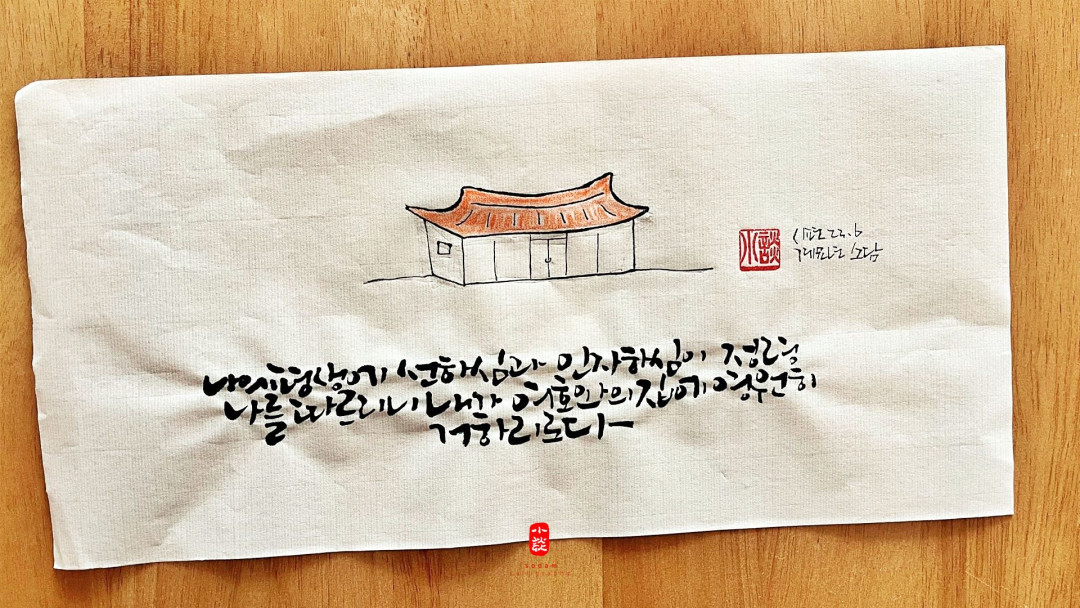 小談
시편 23.6
계묘년 소담
나의 평생에 선하심과 인자하심이 정녕
나를 따르리니 내가 여호와의 집에 영원히
거하리로다
小談
sodam